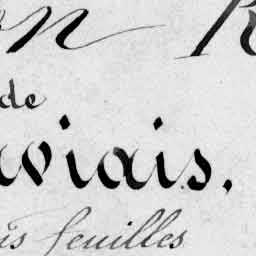 on R
de
aviais.
is feuilles